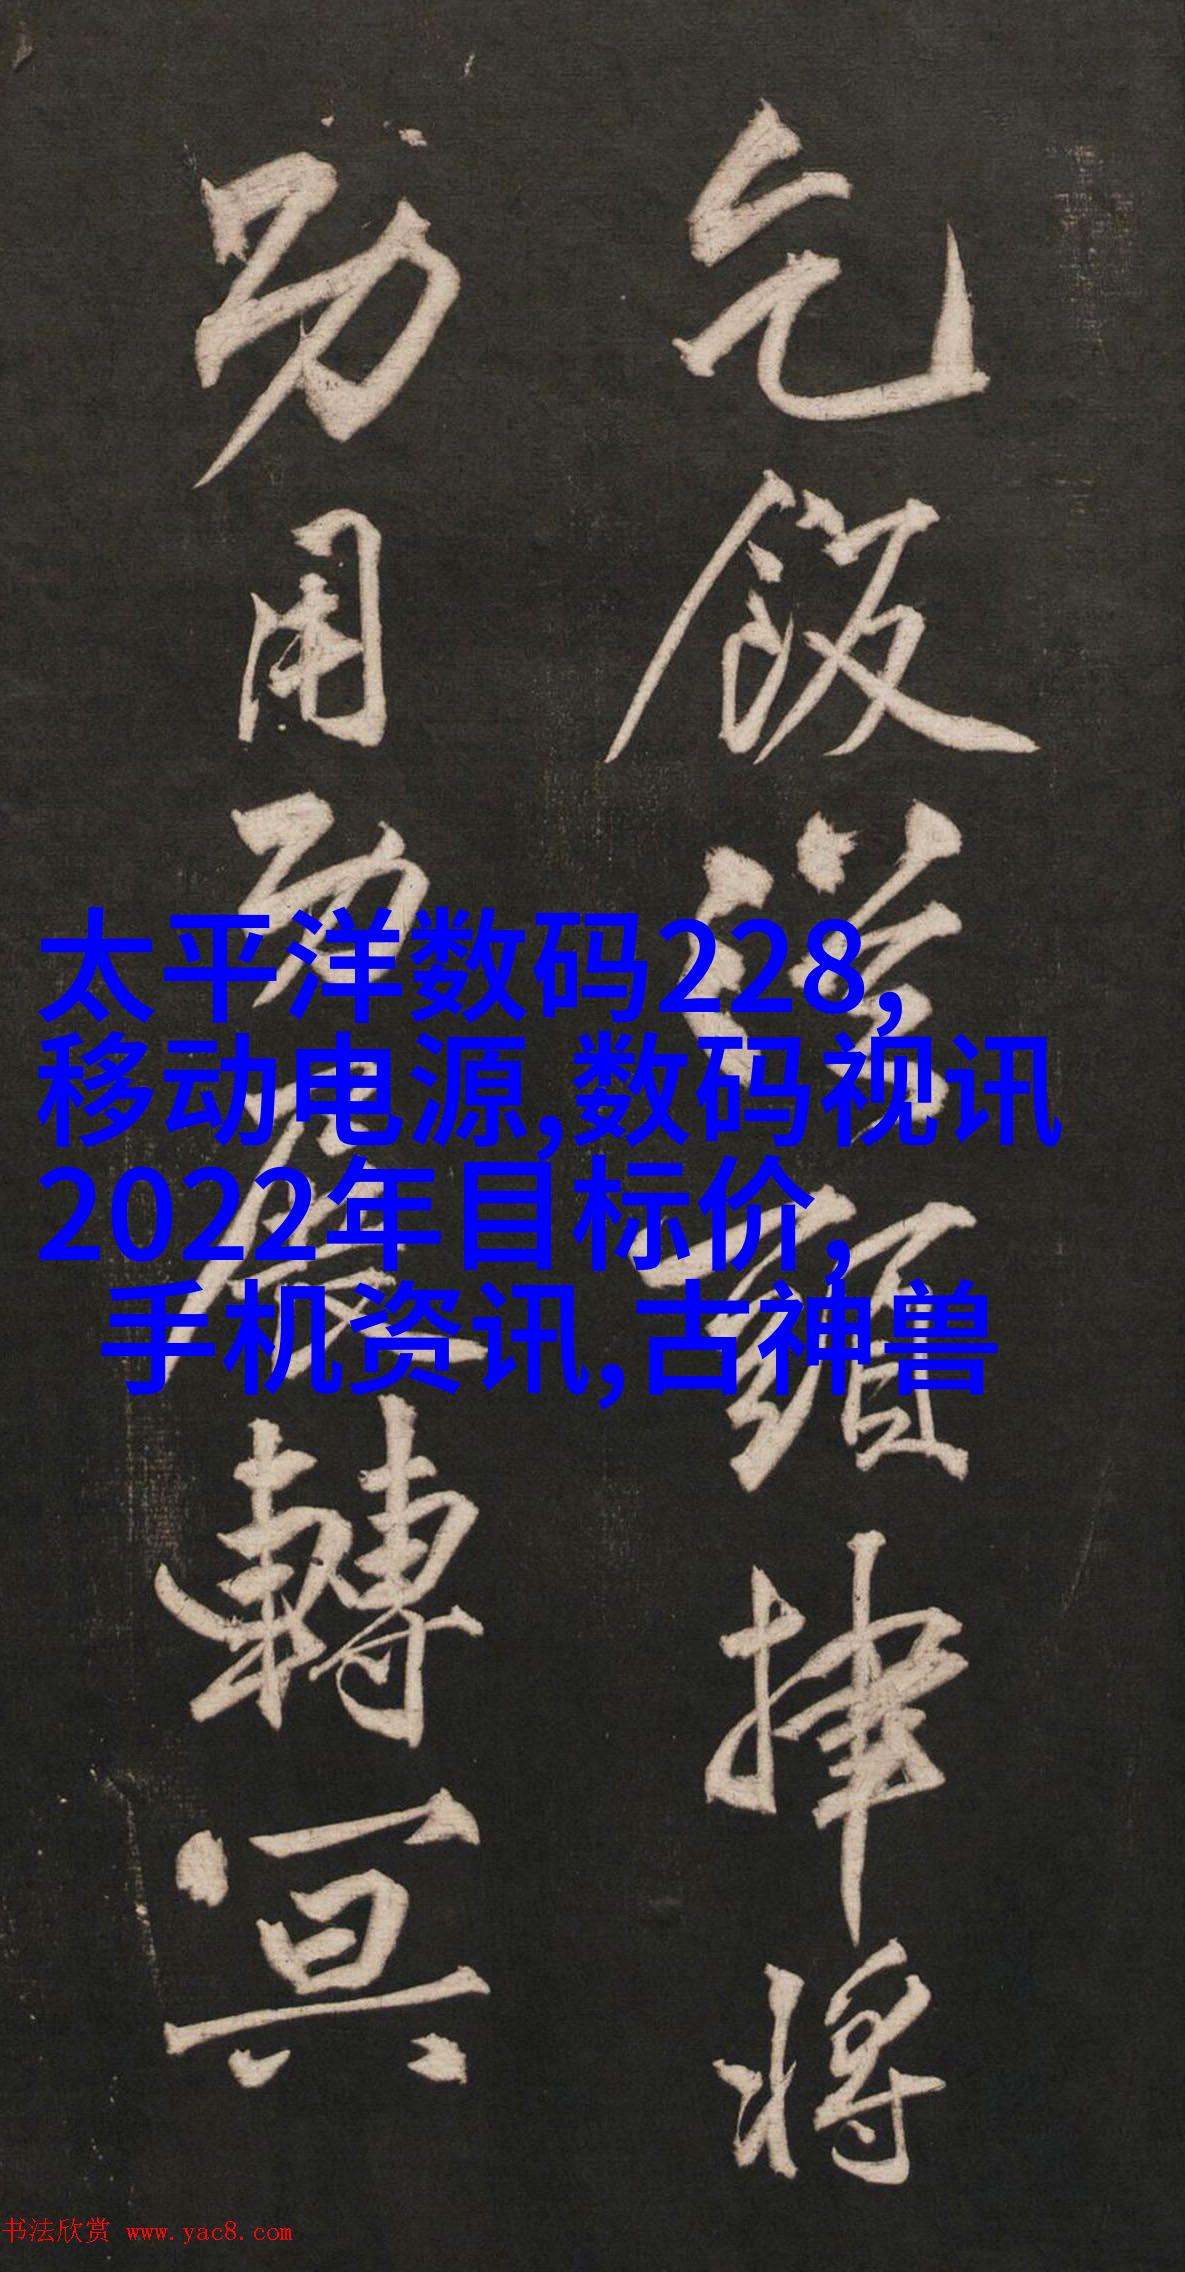 乞飯從頭律將
功用功夫轉冥
太平洋数码228,
移动电源,数码视讯
2022年目标价,
手机资讯,古神兽
书法欣赏 www.yac8.com